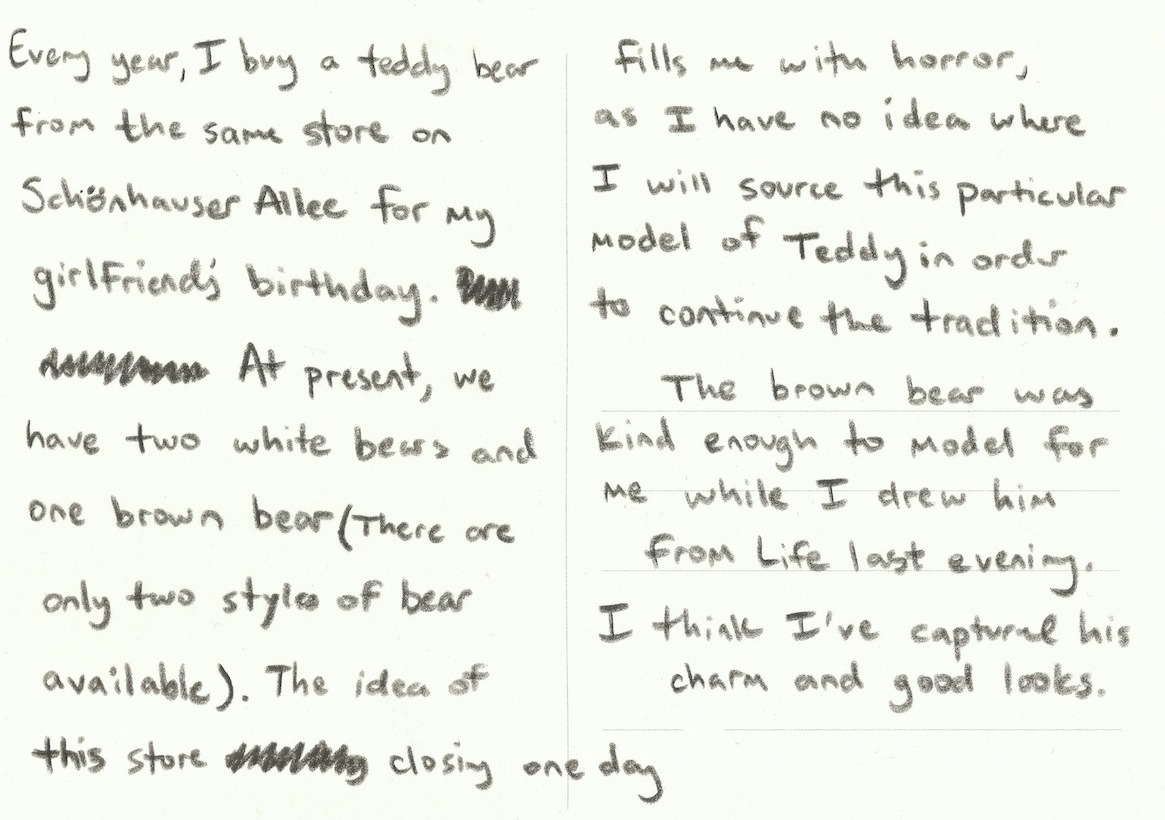 Every year, I buy a teddy bear
from the same store on
Schönhauser Allee for my
girlfriend's birthday.
At present, we
have two white bears and
one brown bear (There are
only two styles of bear
available). The idea of
this store closing one day
fills me with horror,
as I have no idea where
I will source this particular
model of Teddy in order
to continue the tradition.
The brown bear was
kind enough to model for
me while I drew him
from Life last evening.
I think I've captured his
charm and good looks.